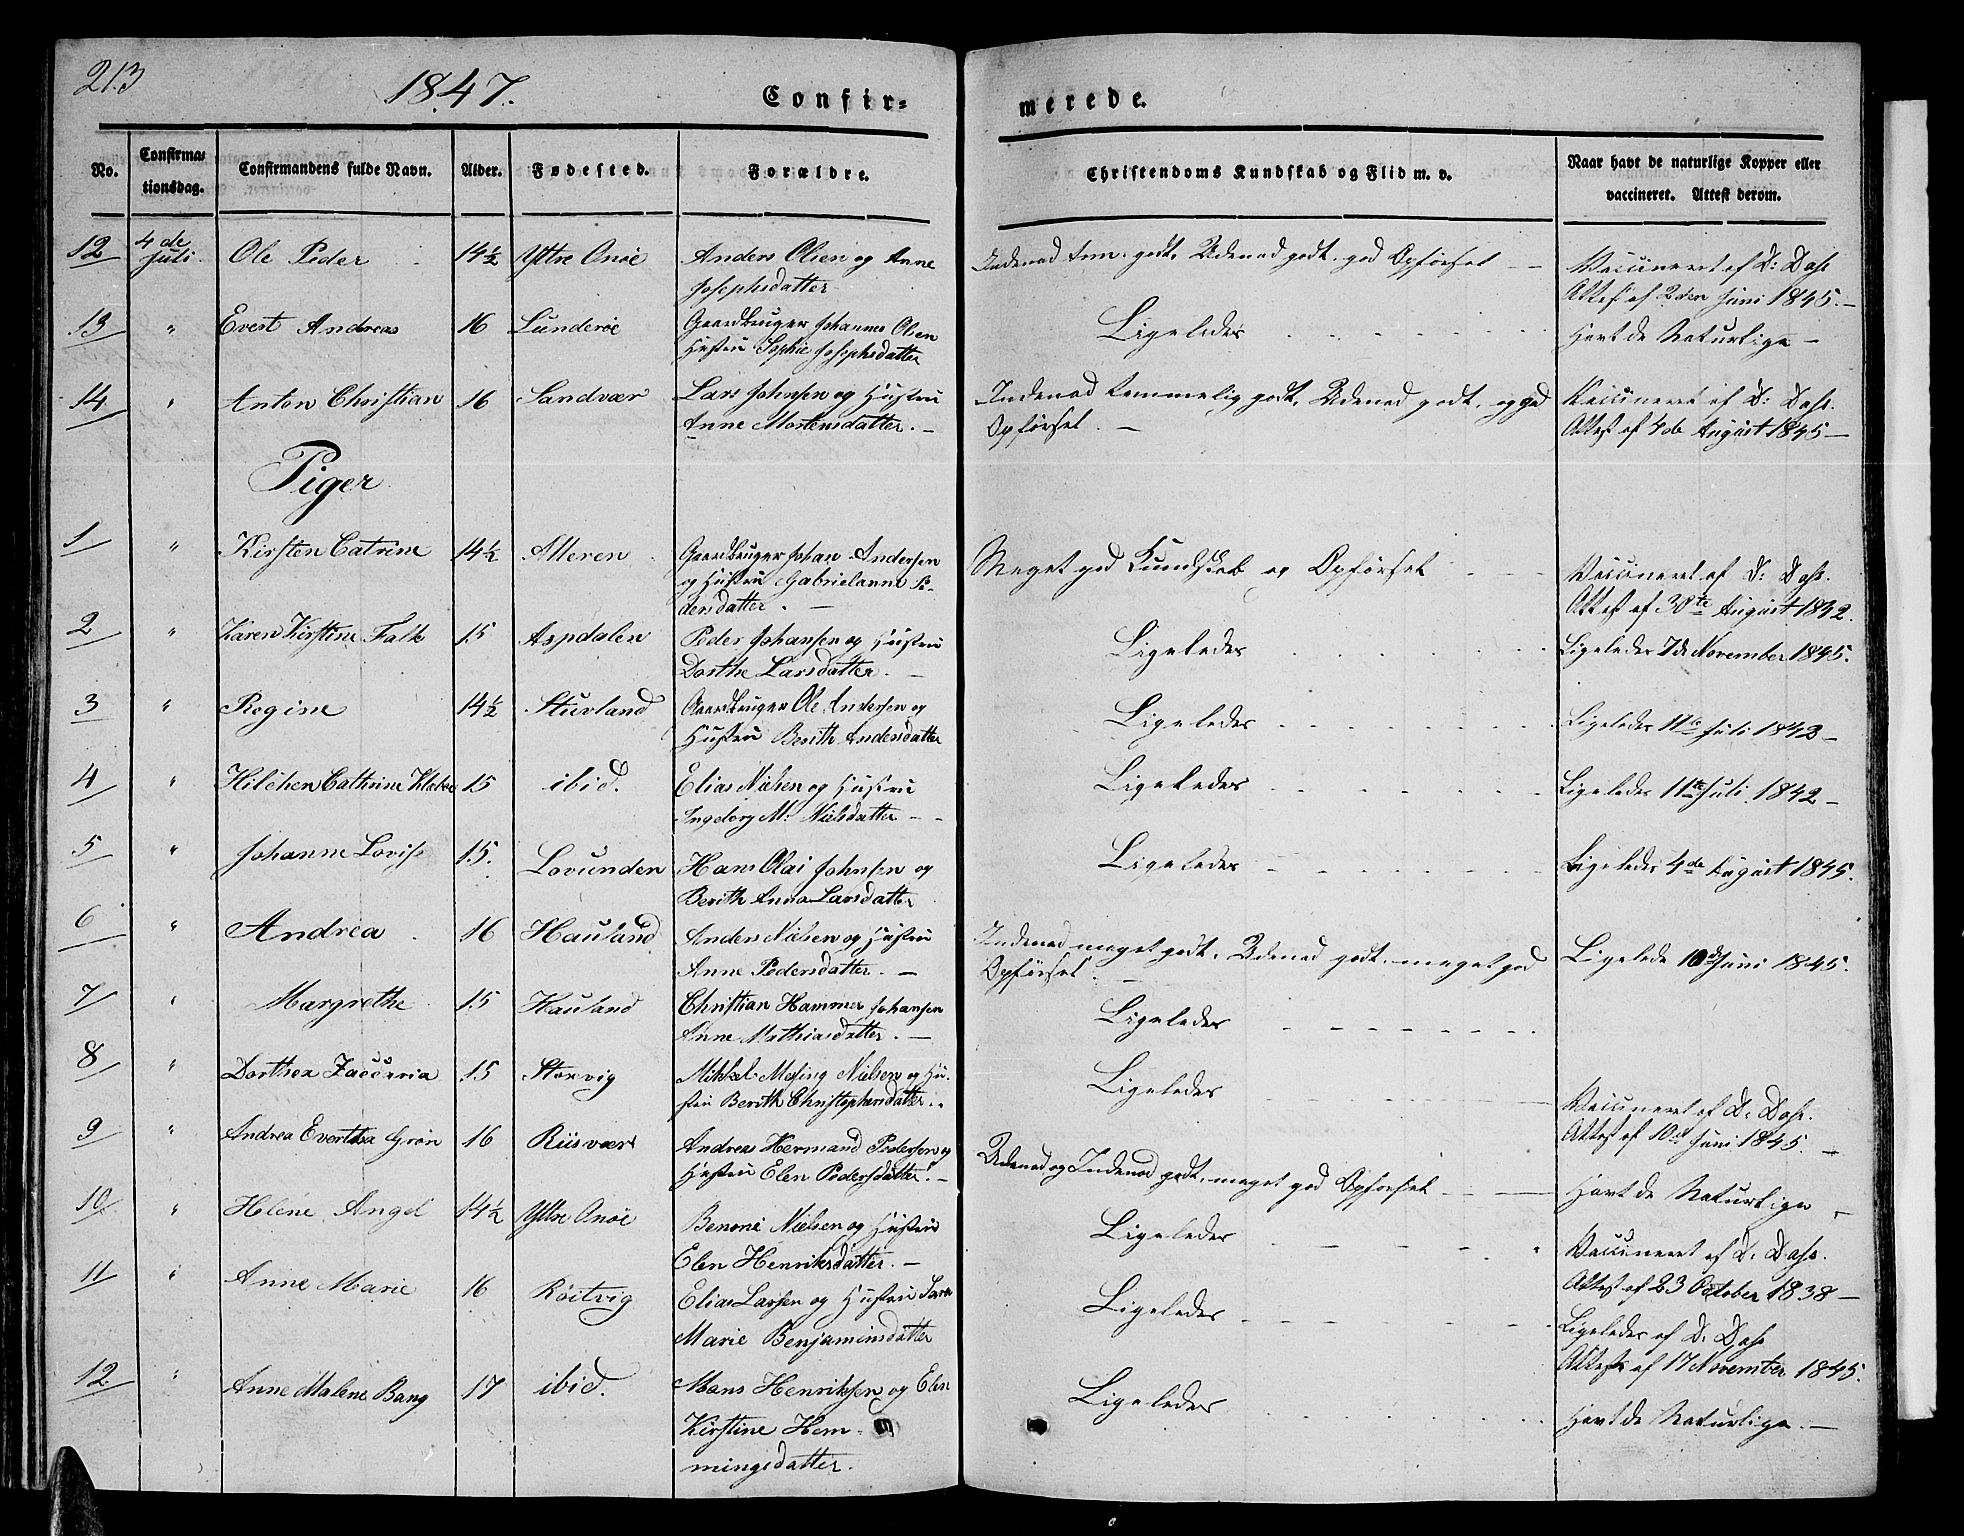 213
1847.
Confir-
merede.
No.
Confirma-
tionsdag.
Confirmandens fulde Navn.
Alder.
Fødested.
Forældre.
Christendoms Kundskab og Flid m. v.
Naar havt de naturlige Kopper eller
vaccineret. Attest derom.
12 4de Juli Ole Peder 14½ Yttre Onöe Anders Olsen og Anne
Josephsdatter
Indenad tem. godt, Udenad godt. god Opførsel
Vaccineret af D: Dahl
Attest af 2den Juni 1845.
13 " Evert Andreas 16 Lunderöe Gaardbruger Johannes Olsen
Hustru Sophie Josephsdatter
Ligeledes
Havt de Naturlige
14 " Anton Christian 16 Sandvær Lars Johnsen og Hustru
Anne Mortensdatter.
Indenad temmelig godt, Udenad godt, og god
Opførsel.
Vaccineret af D: Dahl.
Attest af 4de August 1845
Piger
1 " Kirsten Catrine 14½ Alteren Gaardbruger Johan Andersen
og Hustru Gabrielanna Pe-
dersdatter.
Meget god Kundskab og Opførsel
Vaccineret af D: Dahl.
Attest af 30te August 1842.
2 " Karen Kirstine Falk 15 Aspdalen Peder Johansen og Hustru
Dorthe Larsdatter.
Ligeledes
Ligeledes 7de November 1845.
3 " Regine 14½ Stuvland Gaardbruger Ole Andersen og
Hustru Berith Andersdatter
Ligeledes
Ligeledes 11te Juli 1843
4 " Hilchen Cathrine 15 ibid. Elias Nielsen og Hustru
Ingeborg M: Nielsdatter
Ligeledes
Ligeledes 11te Juli 1842
5 " Johanne Lovise 15. Lovunden Hans Olai Johnsen og
Berith Anna Larsdatter
Ligeledes
Ligeledes 4de August 1845.
6 " Andrea 16 Hauland Anders Nielsen og Hustru
Anne Pedersdatter.
Indenad meget godt, Udenad godt, meget god
Opførsel.
Ligelede 10de Juni 1845.
7 " Margrethe 15 Hauland Christian Hammer Johansen
Anne Mathiasdatter.
Ligeledes
8 " Dorthea Zaccaria 15 Storvig Mikkel Mesing Nielsen og Hu-
stru Berith Christophersdatter.
Ligeledes
Vaccineret af D. Dahl.
Attest af 10de Juni 1845.
9 " Andrea Evertha Grön 16 Riisvær Andreas Hermand Pedersen og
Hustru Elen Pedersdatter.
Udenad og Indenad godt, meget god Opførsel
Havt de Naturlige
10. " Helene Angel 14½ Yttre Onöe Benoni Nielsen og Hustru
Elen Henriksdatter.
Ligeledes
Vaccineret af D. Dahl.
Attest af 23 October 1838
11 " Anne Marie 16 Röitvig Elias Larsen og Hustru Sara
Marie Benjaminsdatter
Ligeledes
Ligeledes af D. Dahl
Attest af 17 November 1845.
12. " Anne Malene Bang 17 ibid. Mons Henriksen og Elen
Kirstine Hem-
mingsdatter.
Ligeledes
Havt de Naturlige.